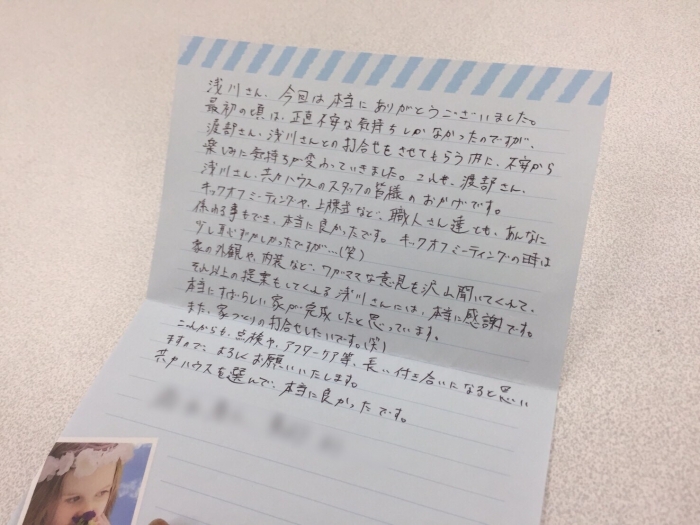 浅川さん、今回は本当にありがとうございました。
最初の頃は、正直不安な気持ちしかなかったのですが、
渡部さん、浅川さんとの打合せをさせてもらう内に、不安から
楽しみに気持ちが変わっていきました。これも、渡部さん、
浅川さん、共力ハウスのスタッフの皆様のおかげです。
キックオフミーティングや、上棟式など、職人さん達とも、あんなに
係わる事もでき、本当に良かったです。キックオフミーティングの時は
少し恥ずかしかったですが…(笑)
家の外観や、内装など、ワガママな意見も沢山聞いてくれて、
それ以上の提案もしてくれる浅川さんには、本当に感謝です。
本当にすばらしい家が完成したと思っています。
また、家づくりの打合せしたいです。(笑)
これからも、点検や、アフターケア等、長い付き合いになると思い
ますので、よろしくお願いいたします。
共力ハウスを選んで、本当に良かったです。